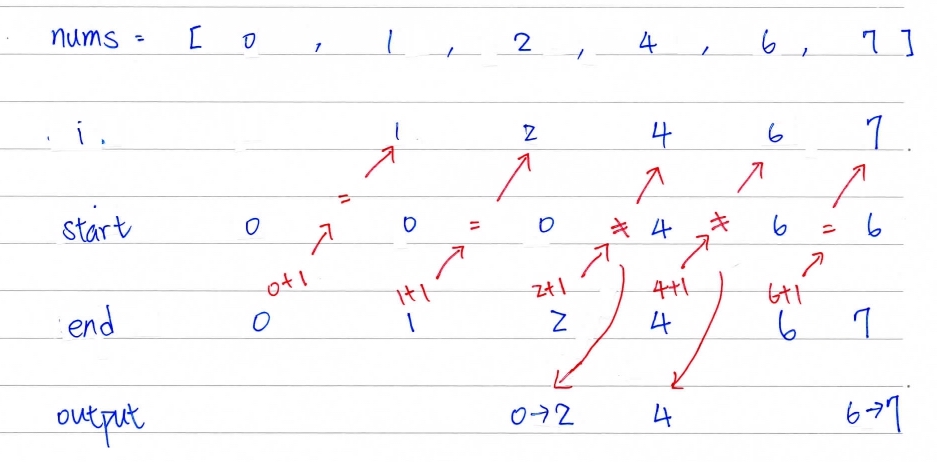 nums = [ 0 , 1 , 2 , 4 , 6 , 7 ]
i. 1 2 4 6 7
= 
start 0 0 = 0 ≠ 4 ≠ 6 = 6
0+1 1+1 2+1 4+1 6+1
end 0 1 2 4 6 7
output 0→2 4 6→7